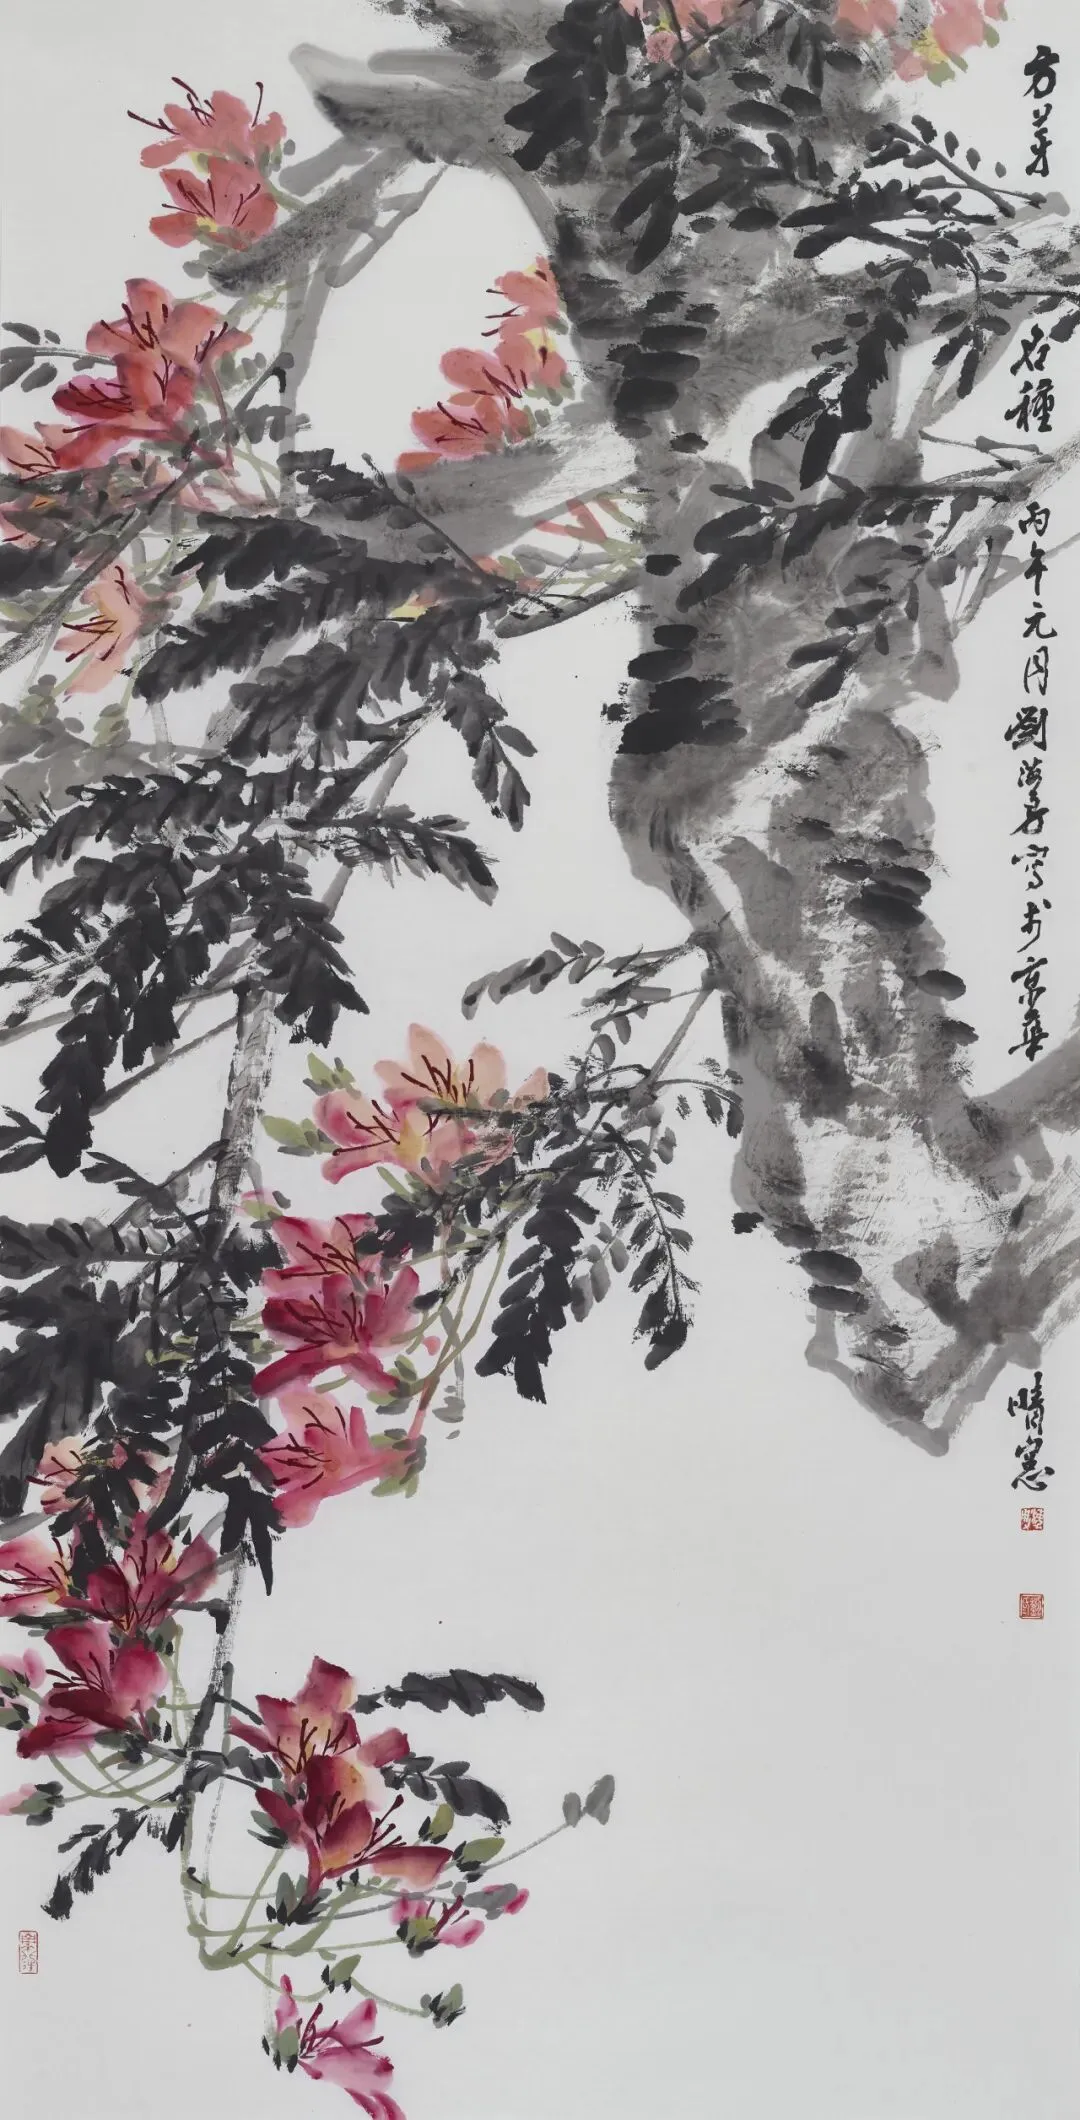 芳華
名種
丙午元月劉海勇寫於京華
晴窗